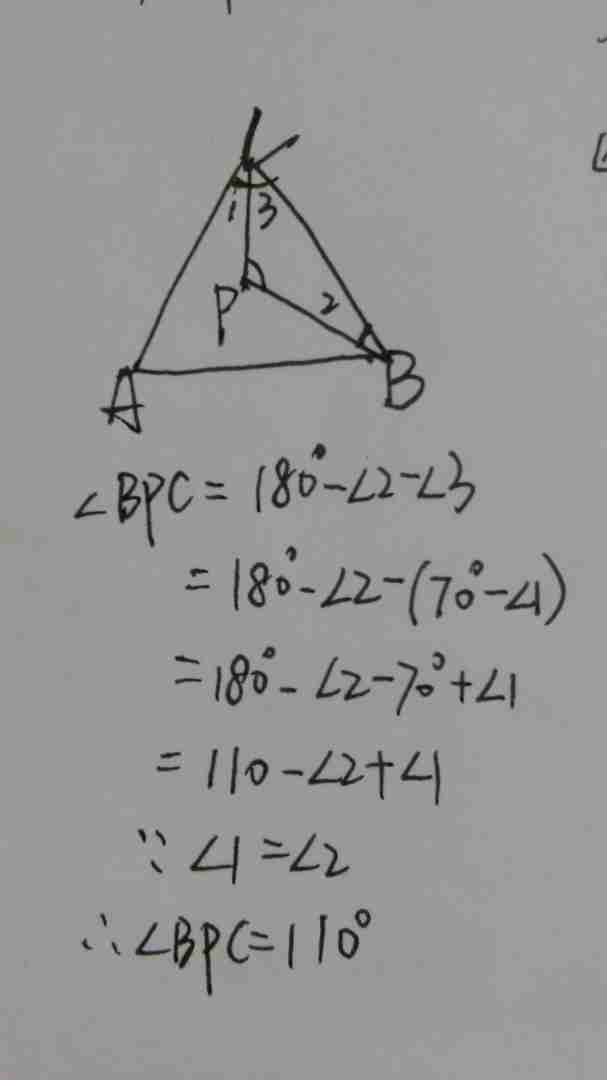 C
1 3
P
2
A
B
∠BPC = 180° - ∠2 - ∠3
= 180° - ∠2 - (70° - ∠1)
= 180° - ∠2 - 70° + ∠1
= 110 - ∠2 + ∠1
∵ ∠1 = ∠2
∴ ∠BPC = 110°